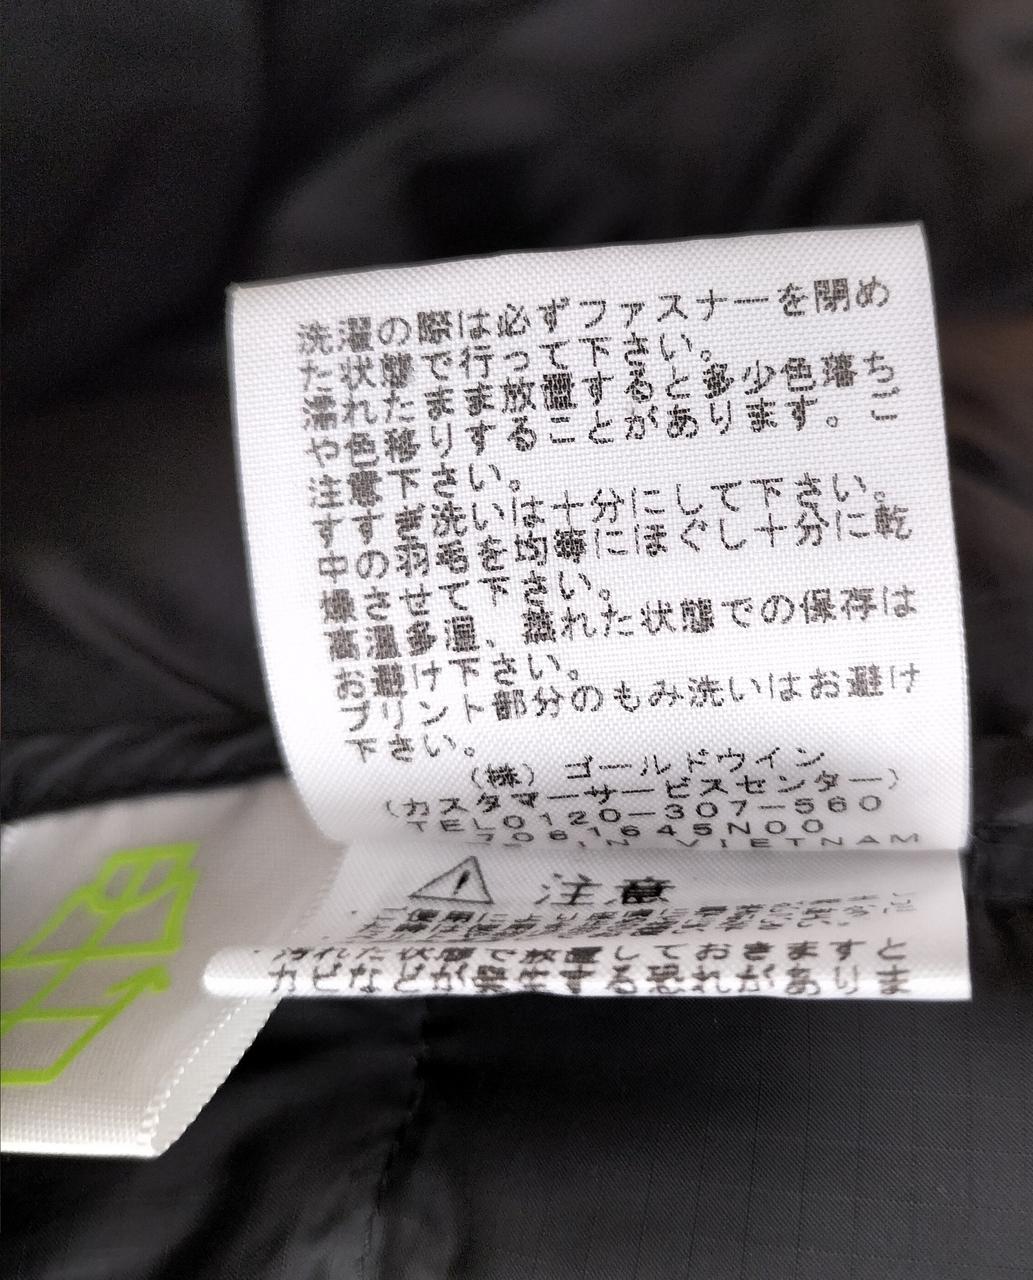 洗濯の際は必ずファスナーを閉め
た状態で行って下さい。
濡れたまま放置すると多少色落ち
や色移りすることがあります。ご
注意下さい。
すすぎ洗いは十分にして下さい。
中の羽毛を均等にほぐし十分に乾
燥させて下さい。
高温多湿、蒸れた状態での保存は
お避け下さい。
プリント部分のもみ洗いはお避け
下さい。
(株) ゴールドウイン
(カスタマーサービスセンター)
TEL0120-307-560
7061645N00
IN VIETNAM
注意
汚れた状態で放置しておきますと
カビなどが発生する恐れがありま